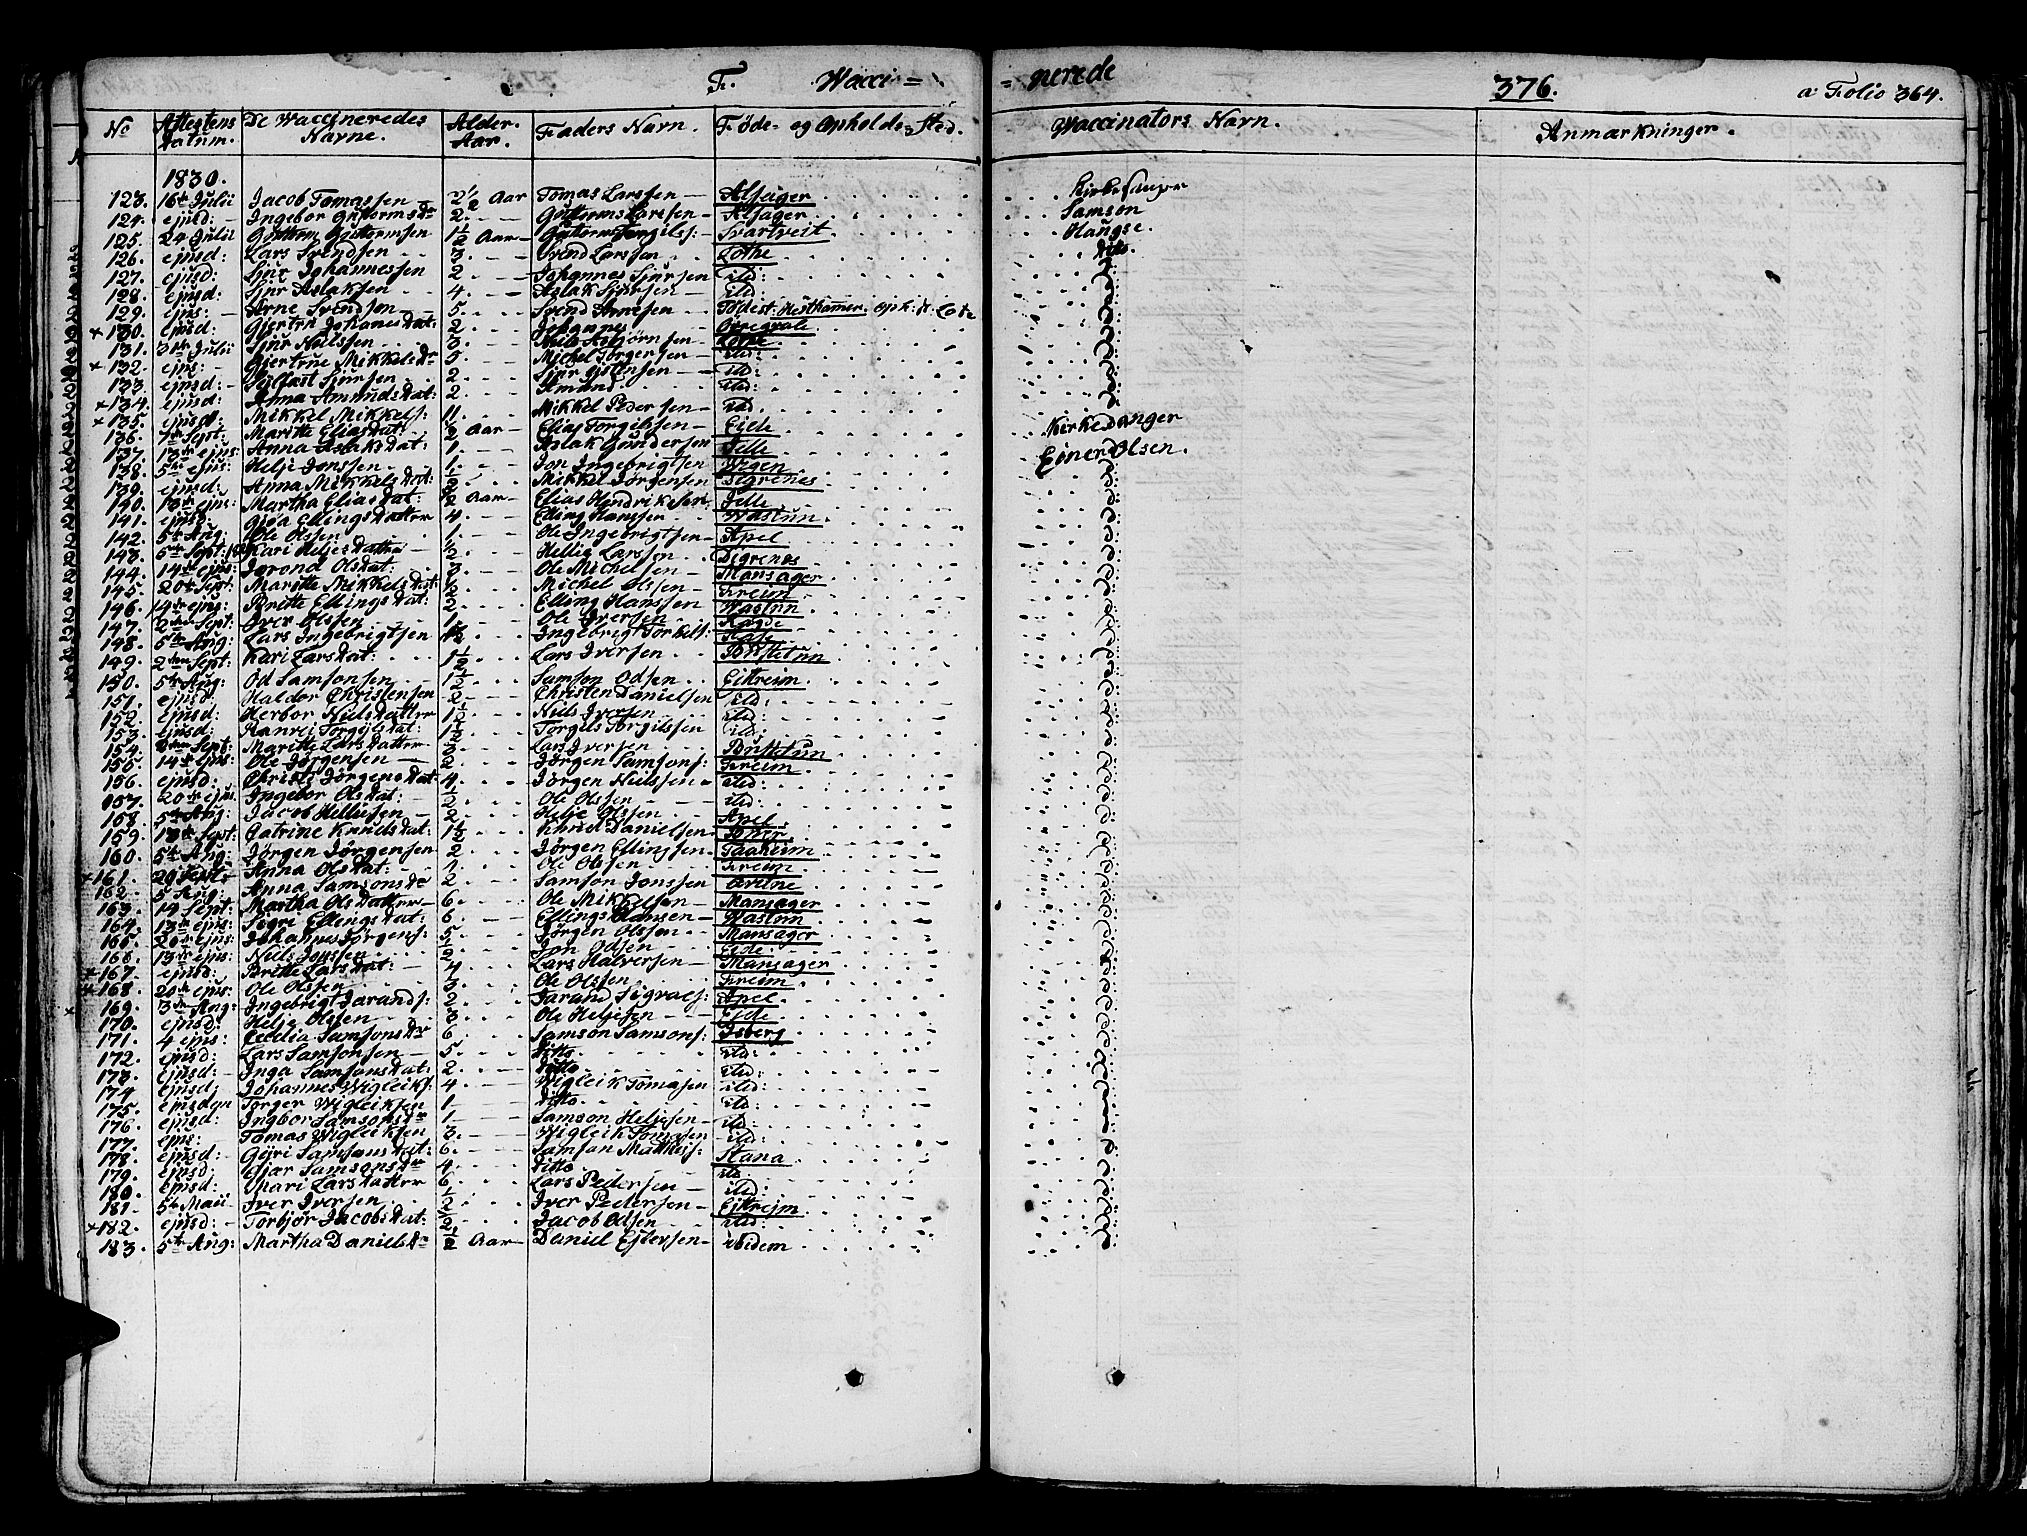 F. Wacci = = nerede 376. a: Folio 364.
No Attestens Datum. De Waccineredes Navne. Alder. Aar. Faders Navn. Føde- og Opholds Sted. Waccinators Navn. Anmærkninger.
1830.
123. 16de Julii Jacob Tomassen 2 1/2 Aar Tomas Larssen Alsager Kirkesanger
124. ejusd: Ingebor Guttormsdr 2. Guttorms Larssen Alsager Samson
125. 24 Julii Guttorm Guttormsen 1 1/2 Aar Guttorm Torgils: Svartveit Haugse.
126. ejusd: Lars Svendsen 3. Svend Larssen Lothe dito.
127. ejusd: Sjur Johannessen 2 Johannes Sjursen itd:
128. ejusd: Sjur Aslaksen 4. Aslak Sjursen itd
129. ejus: Arne Svendsen 5. Svend Arnesen Födest: Hesthamer. oph: it: Lote
130. ejusd: Gjertru Johanesdat: 2. Johannes Øvregvale
131. Julii Sjur Nielssen 3. Niels Asbjørnsen Lothe
132. ejus: Gjertrue Mikkelsdr 5. Michel Jørgensen itd:
133. ejusd: Sjursen 2. Sjur itd:
134. ejusd: Anna Amundsdat: 2. Amund itd:
135. ejusd. Mikkel Mikkels: 11. Mikkel Pedersen itd.
136. Sept: Maritte Eliasdat: 1/2 Aar Elias Torgilssen Eide Kirkesanger
137. 13de ejus: Anna Aslaksdat: 1. Aslak Gundersen Jelle
138. 5te ejus: Helje Jonssen 1. Jon Ingebrigtsen Wigen Einer Olsen.
139. ejusd: Anna Mikkelsdat: Mikkel Jørgensen Digrenes
140. 13de ejus: Martha Eliasdat: 1/2 Aar Elias Hendriksen Jelle
141. ejusd: Gjøa Ellingsdatter 4. Elling Hansen Wastun.
142. 5te Aug: Ole Olssen 1. Ole Ingebrigtsen Apel
143. 6te Sept: Kari Heljesdatter 1/2 Hellie Larssen Digrenes
144. 14de ejus: Jorond Olsdat: 3. Ole Michelsen Mansager
145. 20de Sept: Maritte Mikkelsdat: 1/2 Michel Olssen Freim
146. 14de ejus: Britte Ellingsdat: 2. Elling Hanssen Wastun
147. 2den Sept: Iver Olssen 1. Ole Iversen Ragde
148. 5te Aug: Lars Ingebrigtsen 1/2 Ingebrigt Torkils:
149. 2den Sept: Kari Larsdat: 1 1/2 Lars Iversen Bustetun
150. 5te Aug: Od Samsonsen 1 1/2 Samson Odsen Eitreim
151. ejusd. Haldor Christensen 2. Christen Danielsen itd:
152. ejusd: Herbor Nielsdatter 1 1/2 Niels Iversen itd:
153. ejusd: Ranvei Torgilsdat: Torgils Torgilssen itd:
154. Sept: Maritte Larsdatter 3. Lars Iversen Bustetun
155. 14de ejus: Ole Jørgensen 2. Jørgen Samsons: Freim
156. ejusd: Christi Jørgensdat: 4. Jørgen Nielssen itd:
157. 20de ejus. Ingebor Olsdat: 1/2 Ole Olssen itd:
158. 5te Aug: Jacob Helliesen 2. Helje Olssen Apel
159. 13de Sept: Catrine Knudsdat: 1 1/2 Knud Danielsen
160. 5te Aug: Jørgen Jørgensen 2. Jørgen Ellingsen
161. 20 Sept: Anna Olsdat: 1. Ole Olssen Freim
162. 5 Aug: Anna Samsonsdr 2. Samson Jonssen
163. 14 Sept: Martha Olsdatter 6. Ole Mikkelsen Mansager
164. 13de ejus: Segri Ellingsdat: 6. Ellings Hansen Wastun
165. 20de ejus: Johannes Jørgens: 5. Jørgen Olssen Mansager
166. 13de ejus: Niels Jonssen 1/2 Jon Odsen Eide
167. ejusd: Britte Larsdat: 4. Lars Halversen Mansager
168. 20de ejus: Ole Olssen 3. Ole Olssen Freim
169. 3de Aug: Ingebrigt Jarands: 2. Jarand Sigvals: Apel
170. ejusd: Helje Olssen 3. Ole Heljesen Eide
171. 4 ejus: Cecilia Samsonsdr 6. Samson Samsons: Isberg
172. ejusd: Lars Samsonsen 5. ditto itd:
173. ejusd: Inga Samsonsdat: 2. ditto itd:
174. ejusd: Johannes Wigleiks: 4. Wigleik Tomasen itd:
175. ejusdem Torger Wigleiksen 1. ditto itd:
176. ejusd: Ingbor Samsonsdr 1. Samson Heljesen itd:
177. ejus: Tomas Wigleiksen 3. Wigleik Tomasen itd:
178. ejusd: Gjøri Samsonsdat: 6. Samson Matthis: Stana
179. ejusd: Samsonsdr 4. ditto itd
180. ejusd: Mari Larsdatter 6. Lars Pedersen itd:
181. 5te Maii Iver Iversen 1/2 Iver Pedersen Eitrejm
182. ejusd: Torbjør Jacobsdat: 1/2 Jacob Odsen itd:
183. 5te Aug: Martha Danielsdr 1/2 Aar Daniel Ejlersen ibidem